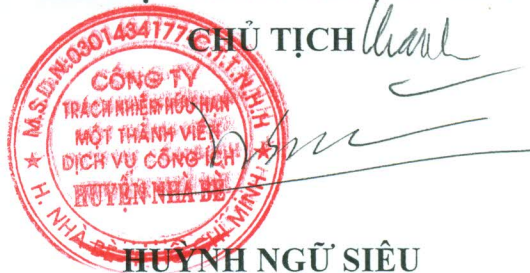 CHỦ TỊCH
M.S.D.N:0301434177-C.T.T.N.H.H
CÔNG TY
TRÁCH NHIỆM HỮU HẠN
MỘT THÀNH VIÊN
DỊCH VỤ CÔNG ÍCH
HUYỆN NHÀ BÈ
H. NHÀ BÈ
CHÍ MINH
HUỲNH NGỮ SIÊU